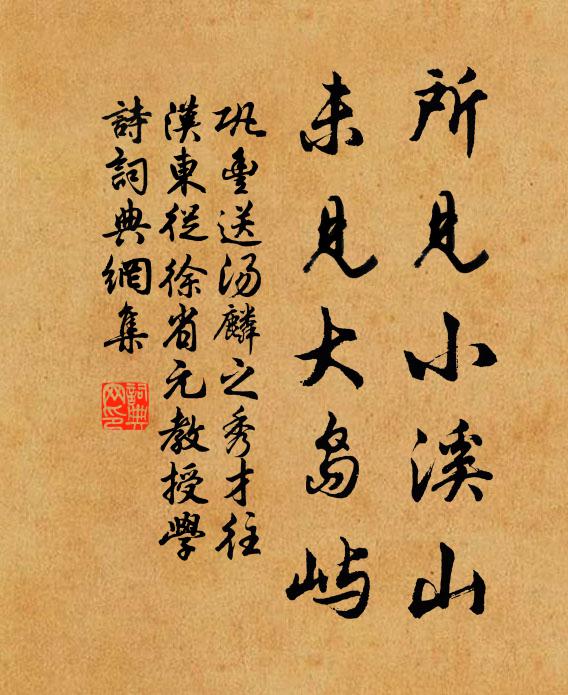 所見小溪山
未見大島嶼
巩豐送湯麟之秀才往
漢東從徐省元教授學
詩詞典網集
詞典網印